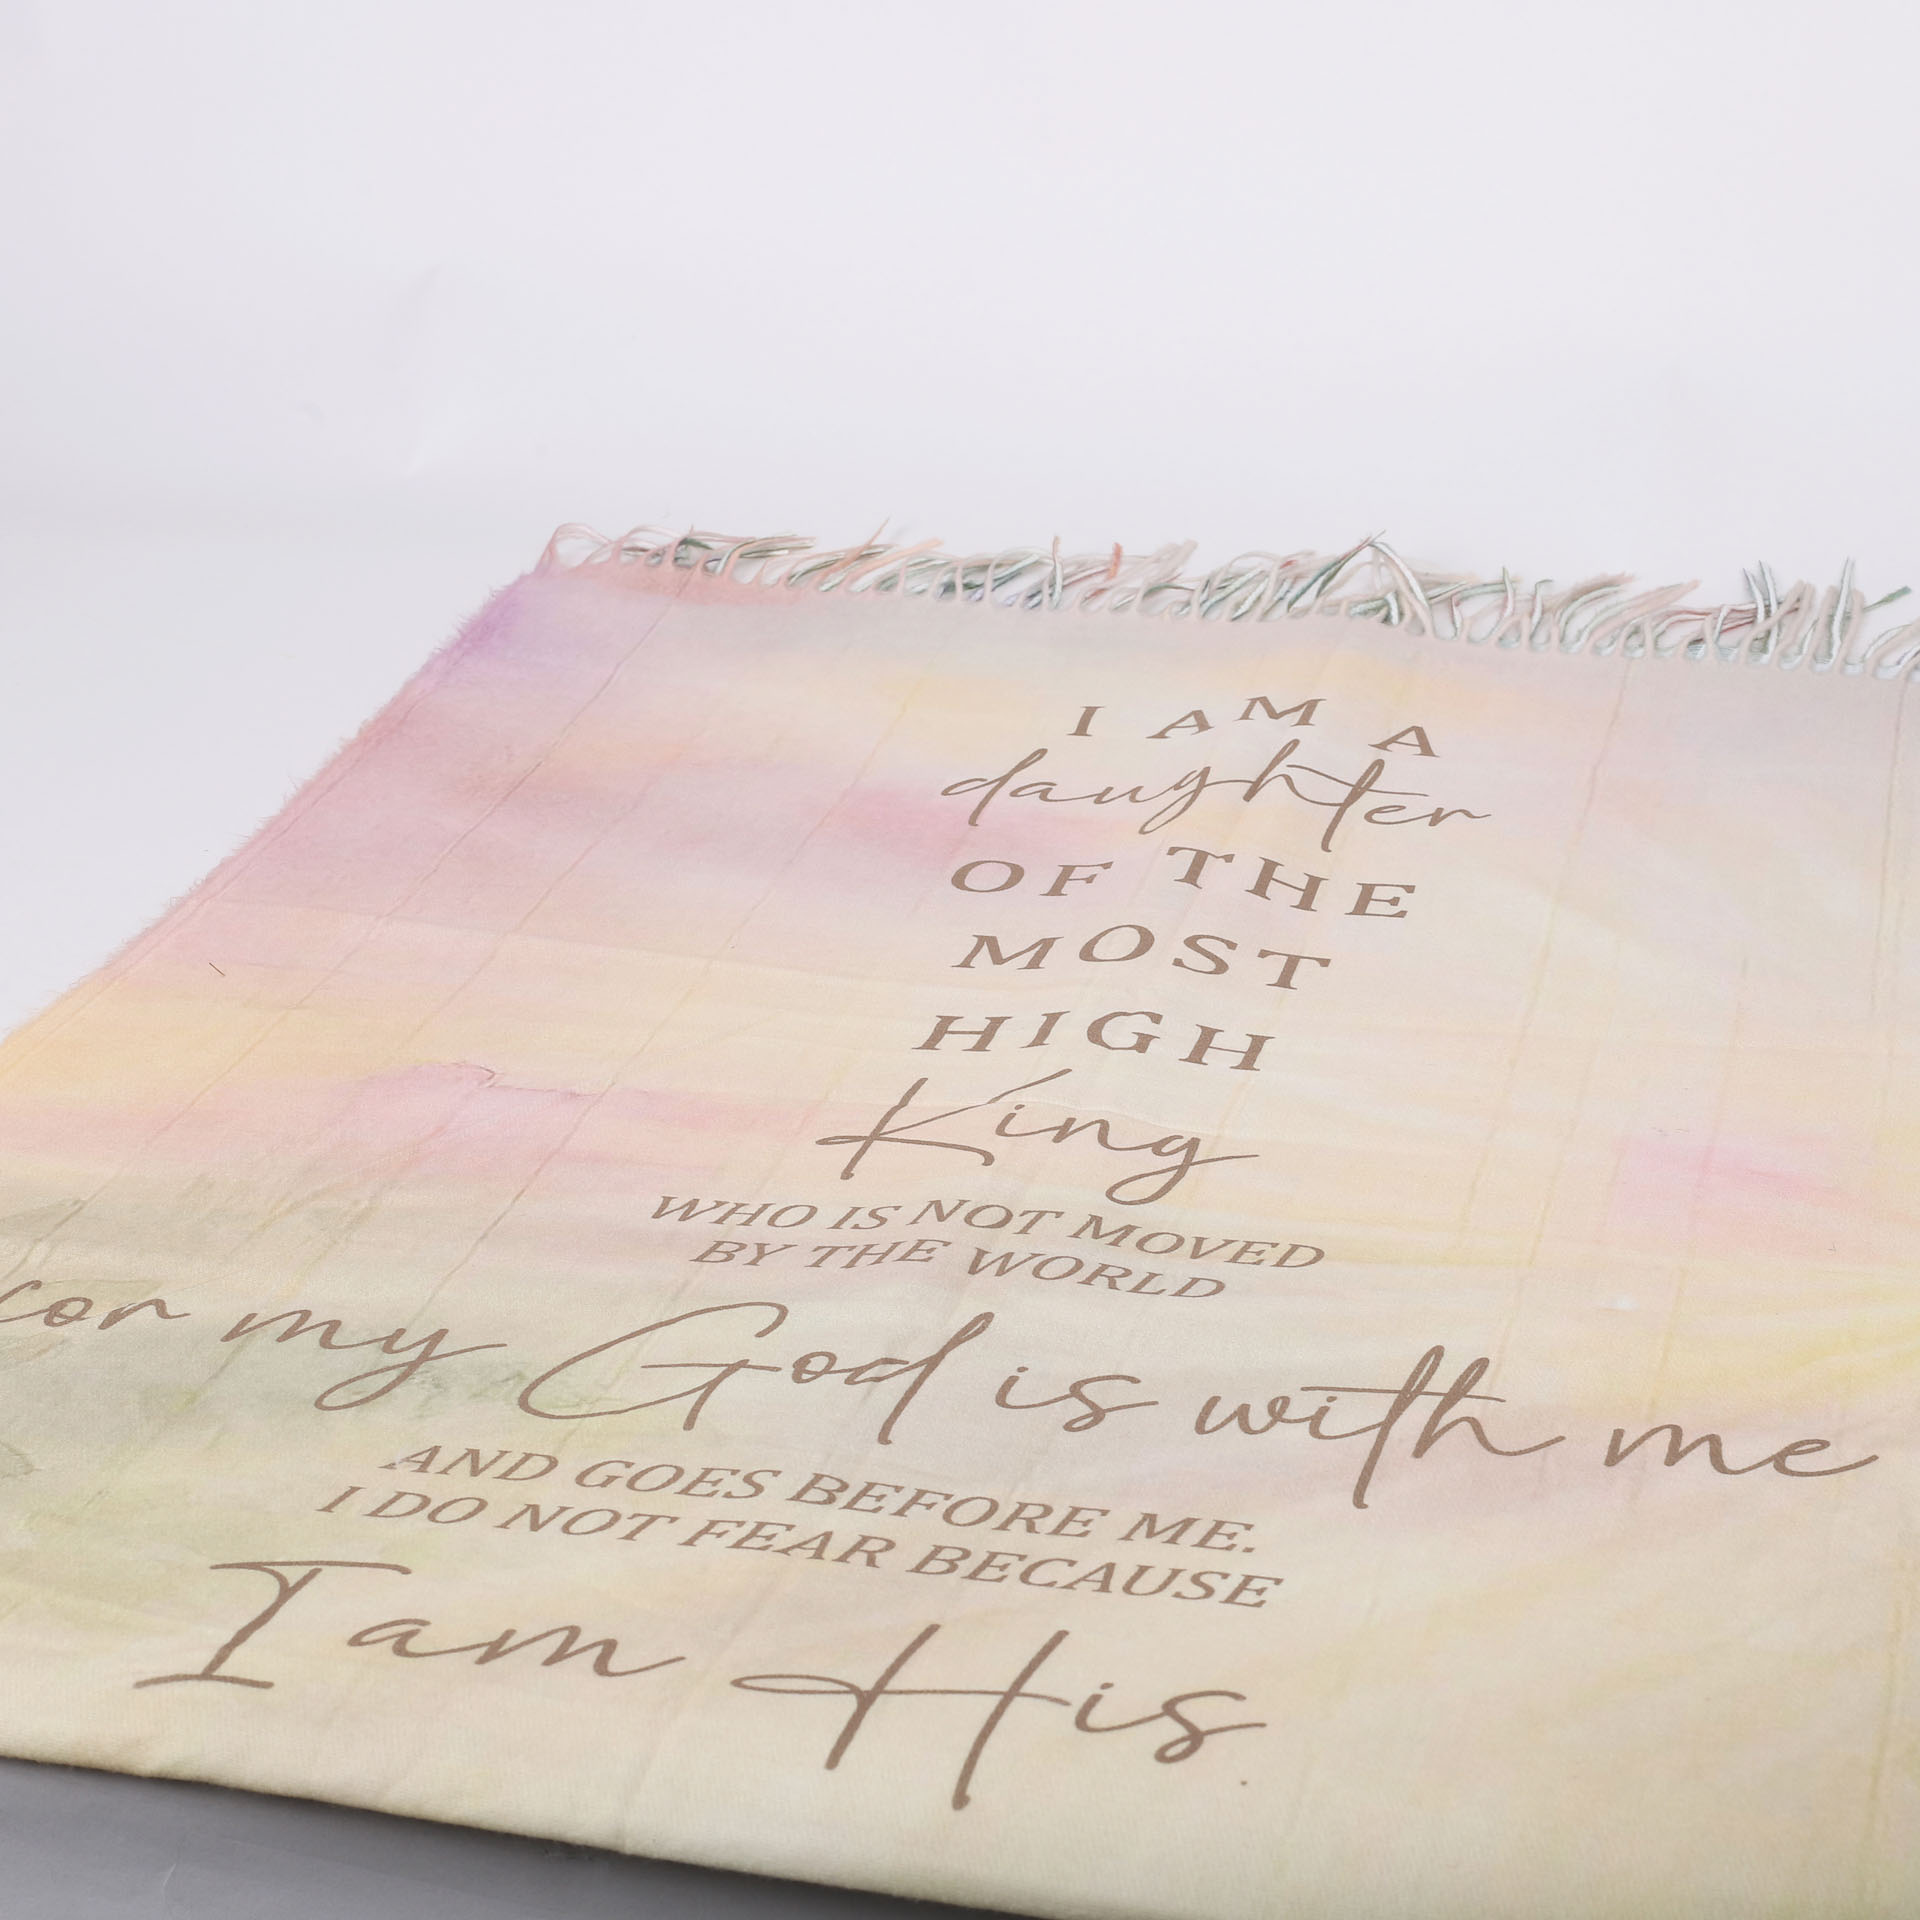 I AM A
daughter
OF THE
MOST
HIGH
King
WHO IS NOT MOVED
BY THE WORLD
for my God is with me
AND GOES BEFORE ME.
I DO NOT FEAR BECAUSE
I am His.